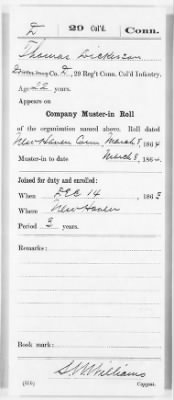 D | 29 Col'd. | Conn.
Thomas Dickerson
Co. D, 29 Reg't Conn. Col'd Infantry.
Age 22 years.
Appears on
Company Muster-in Roll
of the organization named above. Roll dated
New Haven Conn March 8, 1864
Muster-in to date March 8, 1864
Joined for duty and enrolled:
When DEC 14, 1863
Where New Haven
Period 3 years.
Remarks:
Book mark:
Williams
Copyist.